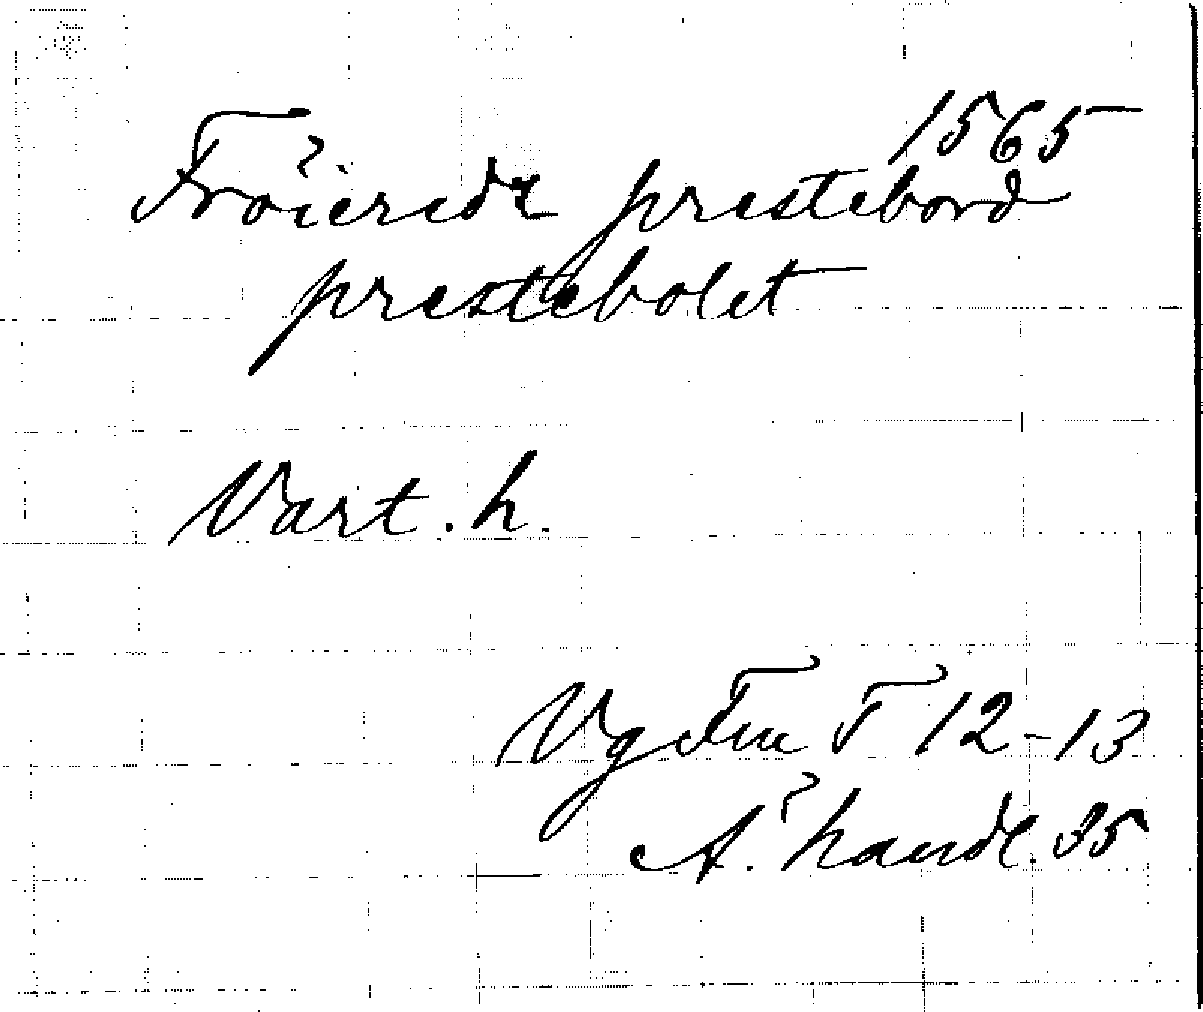 1565
Fröieredz prestebord
prestebolet
Vart. h.
Vg Fne F 12-13
A. handl. 35